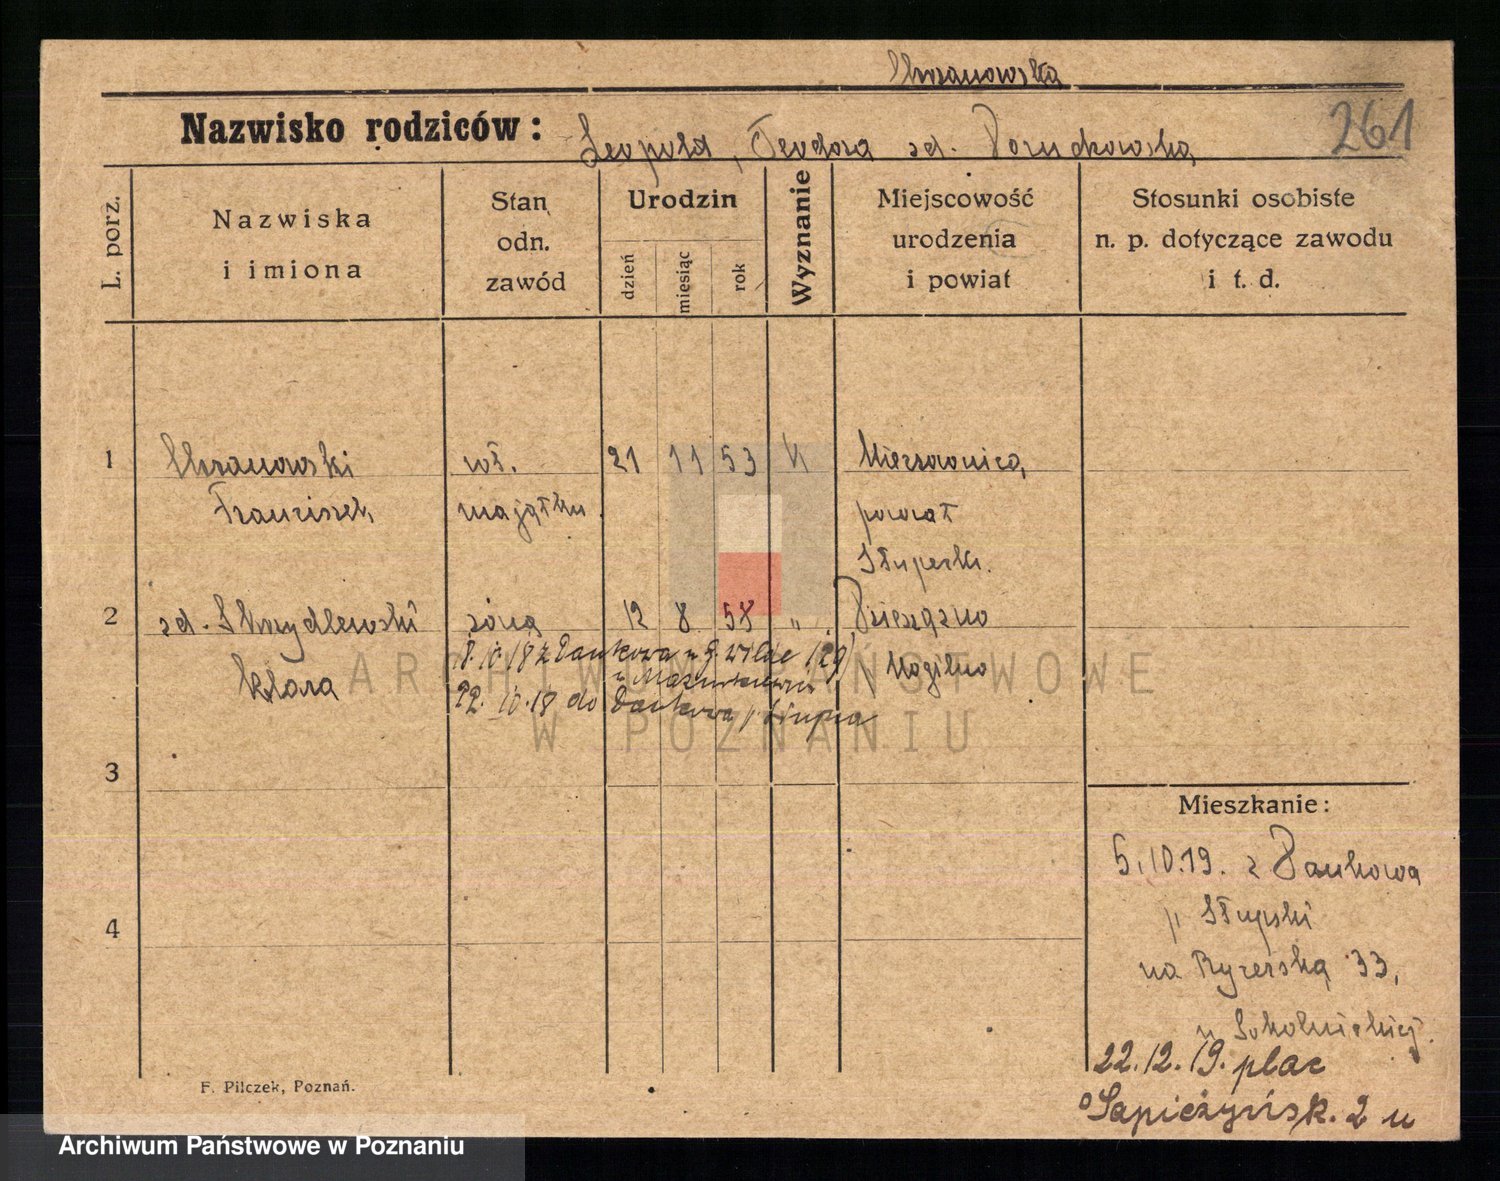 Chrzanowska
Nazwisko rodziców: Leopold, Teodora zd. Doruchowska
261
L. porz.
Nazwiska
i imiona
Stan
odn.
zawód
Urodzin
dzień
miesiąc
rok
Wyznanie
Miejscowość
urodzenia
i powiat
Stosunki osobiste
n. p. dotyczące zawodu
i t. d.
1 Chrzanowski wł. 21 11 53 k Mierzownica,
Franciszek majątku powiat
Słupecki.
2 zd. Skrzydlewski żona 12 8 58 „
Klara Mogilno
8.10.18 z Dankowa
22.10.18 do Dankowa p. Słupca
3
4
Mieszkanie:
5.10.19. z Dankowa
p. Słupski
na Rycerską 33,
u Sokolnickiej.
22.12.19. plac
Sapieżyńsk. 2 u
F. Pilczek, Poznań.
ARCHIWUM PAŃSTWOWE
W POZNANIU
Archiwum Państwowe w Poznaniu